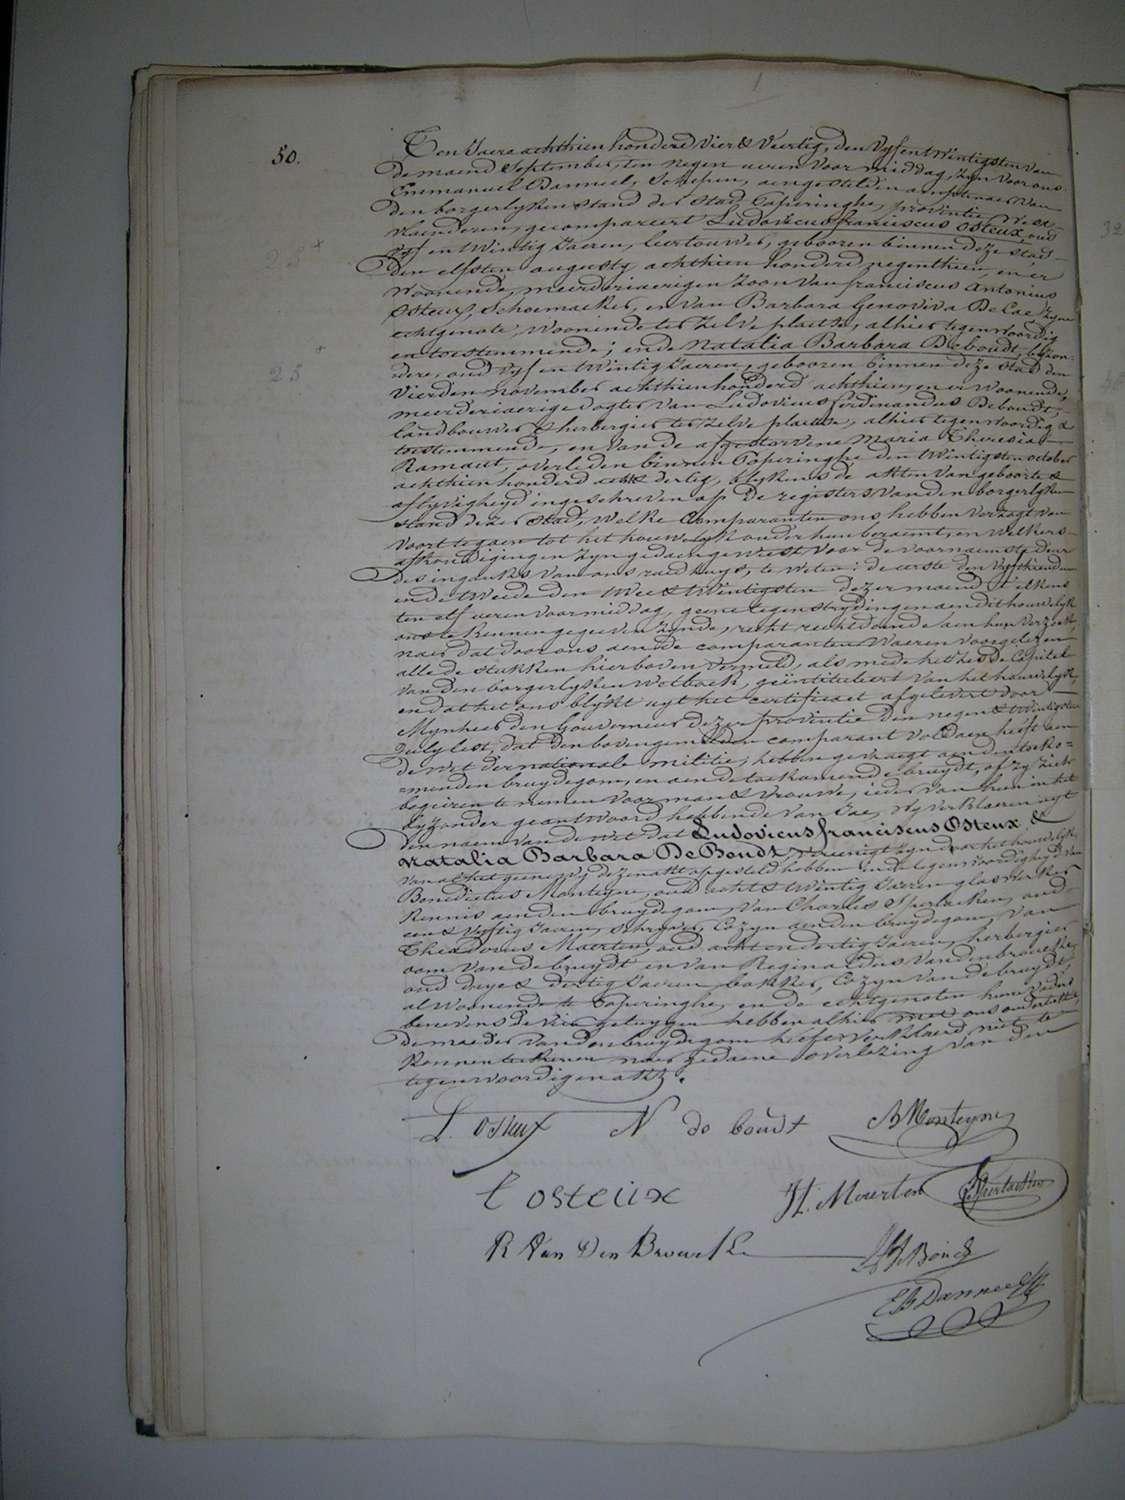 50.
Ten Jaere achthien honderd Vier & Veertig, den Vyf en twintigsten van
de maend September, ten negen ueren voor middag, zyn voor ons
Emmanuel Danneel, Schepen, aengesteld in amptenaer van
den borgerlyken stand der Stad Poperinghe, provintie West-
vlaenderen, gecompareert Ludovicus franciscus Osteux, oud
vyf en twintig Jaeren, leertouwer, gebooren binnen deze stad
den elfsten augusty achthien honderd negenthien, en er
woonende, meerderjaerigen zoon van franciscus Antonius
Osteux, Schoemaeker, en van Barbara Genoviva De Cae zyne
echtgenote, woonende ter zelve plaetse, alhier tegenwoordig
en toestemmende; ende Natalia Barbara Deboudt, byzon-
dere, oud vyf en twintig Jaeren, gebooren binnen deze stad den
vierden november achthien honderd achthien, en er woonende,
meerderjaerige dogter van Ludovicus ferdinandus Deboudt,
landbouwer & herbergier ter zelve plaetse, alhier tegenwoordig &
toestemmende, en van de afgestorvene Maria Theresia
Ramaut, overleden binnen Poperinghe den twintigsten october
achthien honderd acht & dertig, blykens de akten van geboorte &
aflyvigheyd ingeschreven op de registers van den borgerlyken
stand dezer stad, welke Comparanten ons hebben verzogt van
voort te gaen tot het houwelyk onder hun beraemt, en welkers
afkondigingen zyn gedaen geweest voor de voornaemste deur
des ingankx van ons raedhuys, te weten: de eerste den vyfthienden
ende tweede den twee & twintigsten dezer maend t'elkens
ten elf ueren voormiddag, geene tegenstrydingen aen dit houwelyk
ons te kennen gegeven zynde, recht doende aen hun verzoek,
naer dat door ons aen de comparanten waeren voorgelezen
alle de stukken hierboven vermeld, als mede het zesde Capitel
van den borgerlyken Wetboek, geïntituleert van het houwelyk,
en dat het ons blykt uyt het certificaet afgelevert door
Mynheer den Gouverneur dezer provintie den negen & twintigsten
July lest, dat den bovengemelden comparant voldaen heeft aen
de wet der nationale militie, hebben gevraegt aen den toeko=
=menden bruydegom, en aen de toekomende bruydt, of zy zich
begeiren te nemen voor man & vrouwe, ieder van hun in het
byzonder geantwoord hebbende van Jae, wy verklaeren uyt
den naem van de wet dat Ludovicus franciscus Osteux &
Natalia Barbara De Boudt, vereenigt zyn door het houwelyk
van al het geene wy dezen akt opgesteld hebben in de tegenwoordigheyd van
Benedictus Monteyne, oud acht & twintig Jaeren glasmaeker
kennis aen den bruydegom, van Charles Spertaelken, oud
een & vyftig Jaeren, schryver, Cozyn aen den bruydegom, van
Theodorus Maerten, oud acht en dertig Jaeren, herbergier
oom van de bruydt en van Reginaldus Vandenbroucke,
oud drye & dertig Jaeren bakker, Cozyn van de bruydt
al woonende te Poperinghe, en de echtgenoten hunne vaders
benevens de vier getuygen hebben alhier met ons onderteekent,
de moeder van den bruydegom heeft verklaerd niet te
konnen teekenen naer gedaene overlezing van den
tegenwoordigen akt.
L. Osteux N de boudt B Monteyne
f osteüx H. Maerten
R Van Den Broucke
E B Danneel